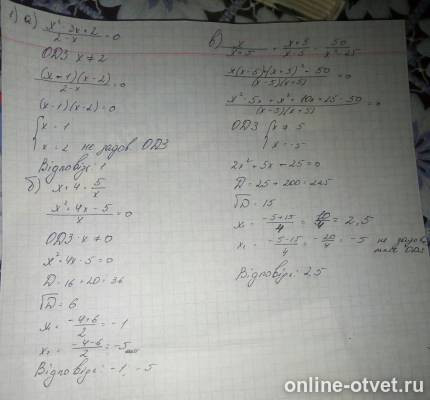 1) а) x² - 3x + 2 / 2 - x = 0
ОДЗ x ≠ 2
(x - 1)(x - 2) / 2 - x = 0
(x - 1)(x - 2) = 0
x = 1
x = 2 не задов. ОДЗ
Відповідь: 1
б) x + 4 = 5/x
x² + 4x - 5 / x = 0
ОДЗ x ≠ 0
x² + 4x - 5 = 0
D = 16 + 20 = 36
√D = 6
x₁ = -4+6 / 2 = -1
x₂ = -4-6 / 2 = -5
Відповідь: -1, -5
в) x / x+5 + x+5 / x-5 = 50 / x²-25
x(x-5)+(x+5)²-50 / (x-5)(x+5) = 0
x² - 5x + x² + 10x + 25 - 50 / (x-5)(x+5) = 0
ОДЗ x ≠ 5
x ≠ -5
2x² + 5x - 25 = 0
D = 25 + 200 = 225
√D = 15
x₁ = -5+15 / 4 = 10/4 = 2,5
x₂ = -5-15 / 4 = -20/4 = -5 не задов
ОДЗ
Відповідь: 2,5
online-otvet.ru